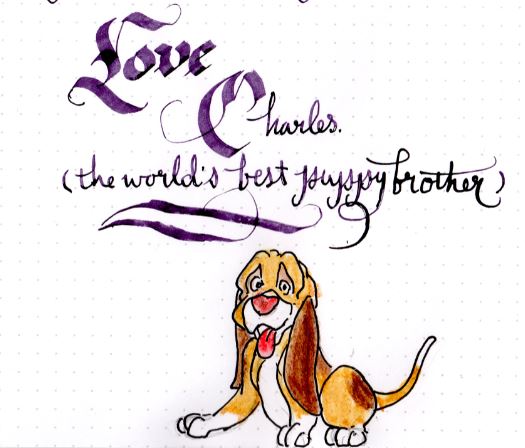 Love
Charles.
(the world's best puppy brother)